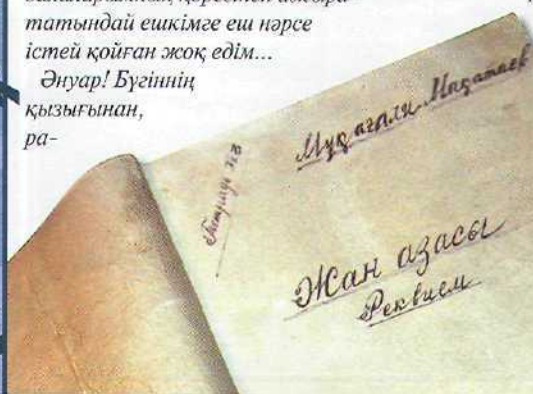 татындай ешкімге еш нәрсе
істей қойған жоқ едім...
Әнуар! Бүгіннің
қызығынан,
ра-
Мұқағали Мақатаев
Тетрадь №3
Жан азасы
Реквием